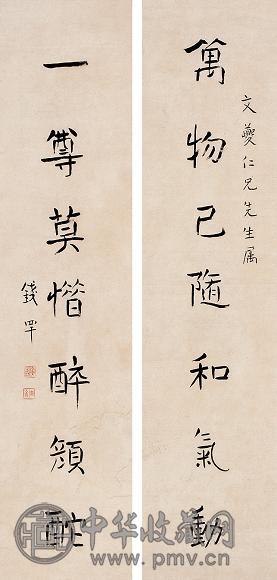 文夔仁兄先生属
萬物已隨和氣動
一尊莫惜醉顏酡
錢罕
中华收藏网
www.pmv.cn